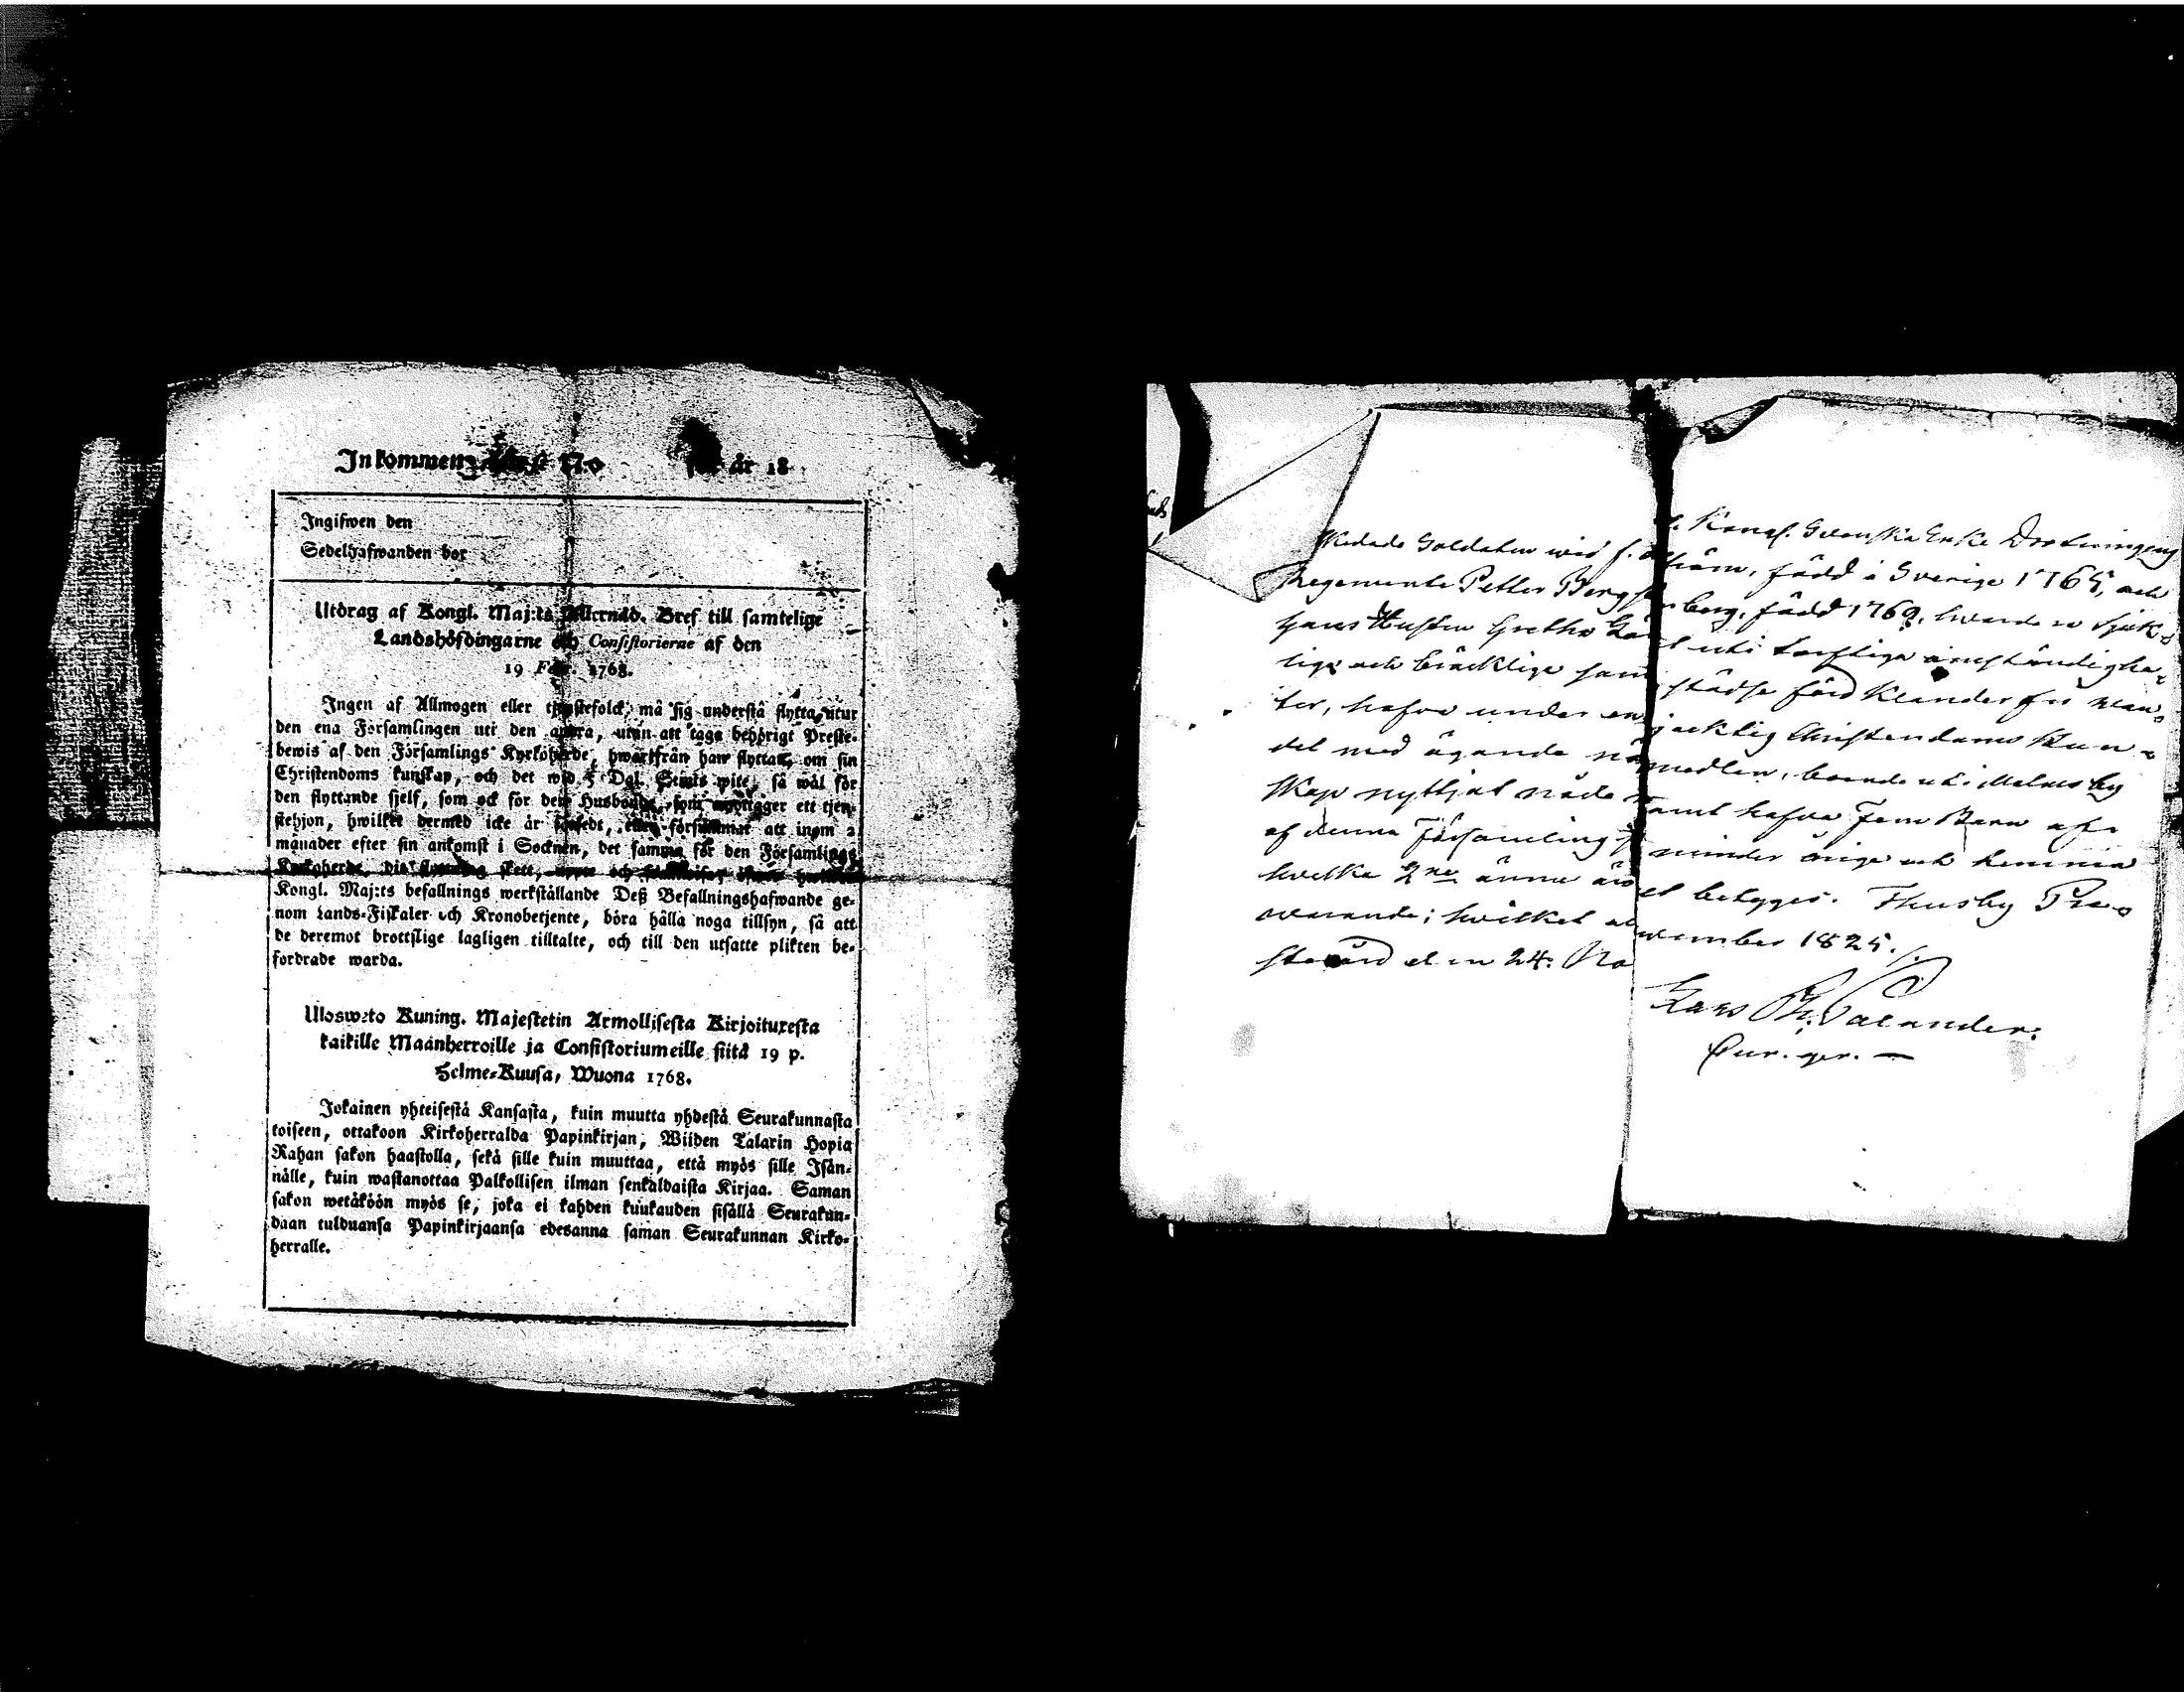 Inkommen No år 18
Ingifwen den
Sedelhafwanden bor
Utdrag af Kongl. Maj:ts Bref till samtelige
Landshöfdingarne och Consistorierne af den
19 Febr. 1768.
Ingen af Allmogen eller tjenstefolck, må sig understå flytta utur
den ena Församlingen uti den andra, utan att taga behörigt Preste-
bewis af den Församlings Kyrkoherde, hwartfrån han flyttar, om sin
Christendoms kunskap, och det wid 5 Dal. Smts wite, så wäl för
den flyttande sjelf, som ock för den Husbonde, som ett tjen-
stehjon, hwilket dermed icke är försedt, eller försummat att inom 2
månader efter sin ankomst i Socknen, det samma för den Församlings
Kyrkoherde, skett, och
Kongl. Maj:ts befallnings werkställande Deß Befallningshafwande ge-
nom Lands-Fiskaler och Kronobetjente, böra hålla noga tillsyn, så att
de deremot brottslige lagligen tilltalte, och till den utsatte plikten be-
fordrade warda.
Ulosweto Kuning. Majestetin Armollisesta Kirjoituxesta
kaikille Maanherroille ja Consistoriumeille siitä 19 p.
Helme-Kuusa, Wuona 1768.
Jokainen yhteisestä Kansasta, kuin muutta yhdestä Seurakunnasta
toiseen, ottakoon Kirkoherralda Papinkirjan, Wiiden Talarin Hopia
Rahan sakon haastolla, sekä sille kuin muuttaa, että myös sille Isän-
nälle, kuin wastanottaa Palkollisen ilman senkaldaista Kirjaa. Saman
sakon wetäköön myös se, joka ei kahden kuukauden sisällä Seurakun-
daan tulduansa Papinkirjaansa edesanna saman Seurakunnan Kirko-
herralle.
Soldaten wid f. Kongl. Svenska Enke Drottningens
Regemente Petter Bergström, född i Sverige 1765, och
hans Hustru Gretha berg, född 1769, hvarde sjuk-
lige och bräcklige samt uti torftiga omständighe-
ter, hafva under en städse förd klanderfri van-
del med ägande nöjacktig Christendoms Kun-
skap nyttjat nåde medlen, boende uti Malms by
af denna Församling samt hafva fem Barn af
hvilka 2ne ännu äro minder årige och hemma
varande; hvilket betygges. Thusby Pre-
stgård den 24. November 1825.
Lars Palander.
Cur. ger.